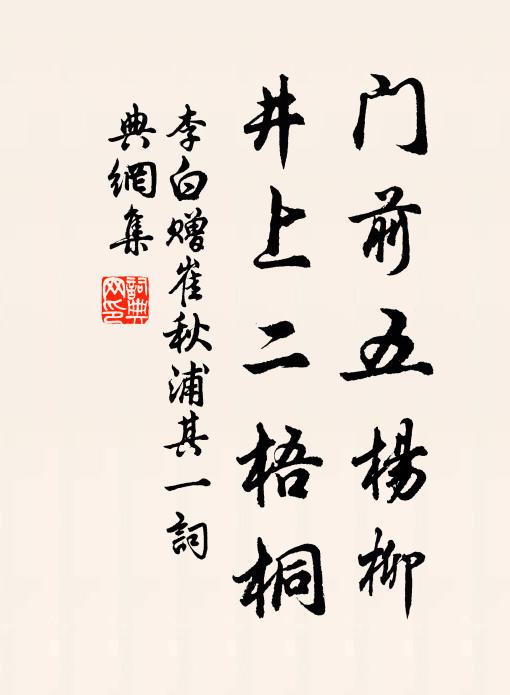 门前五楊柳
井上二梧桐
李白赠崔秋浦其一詞
典網集
詞典网印